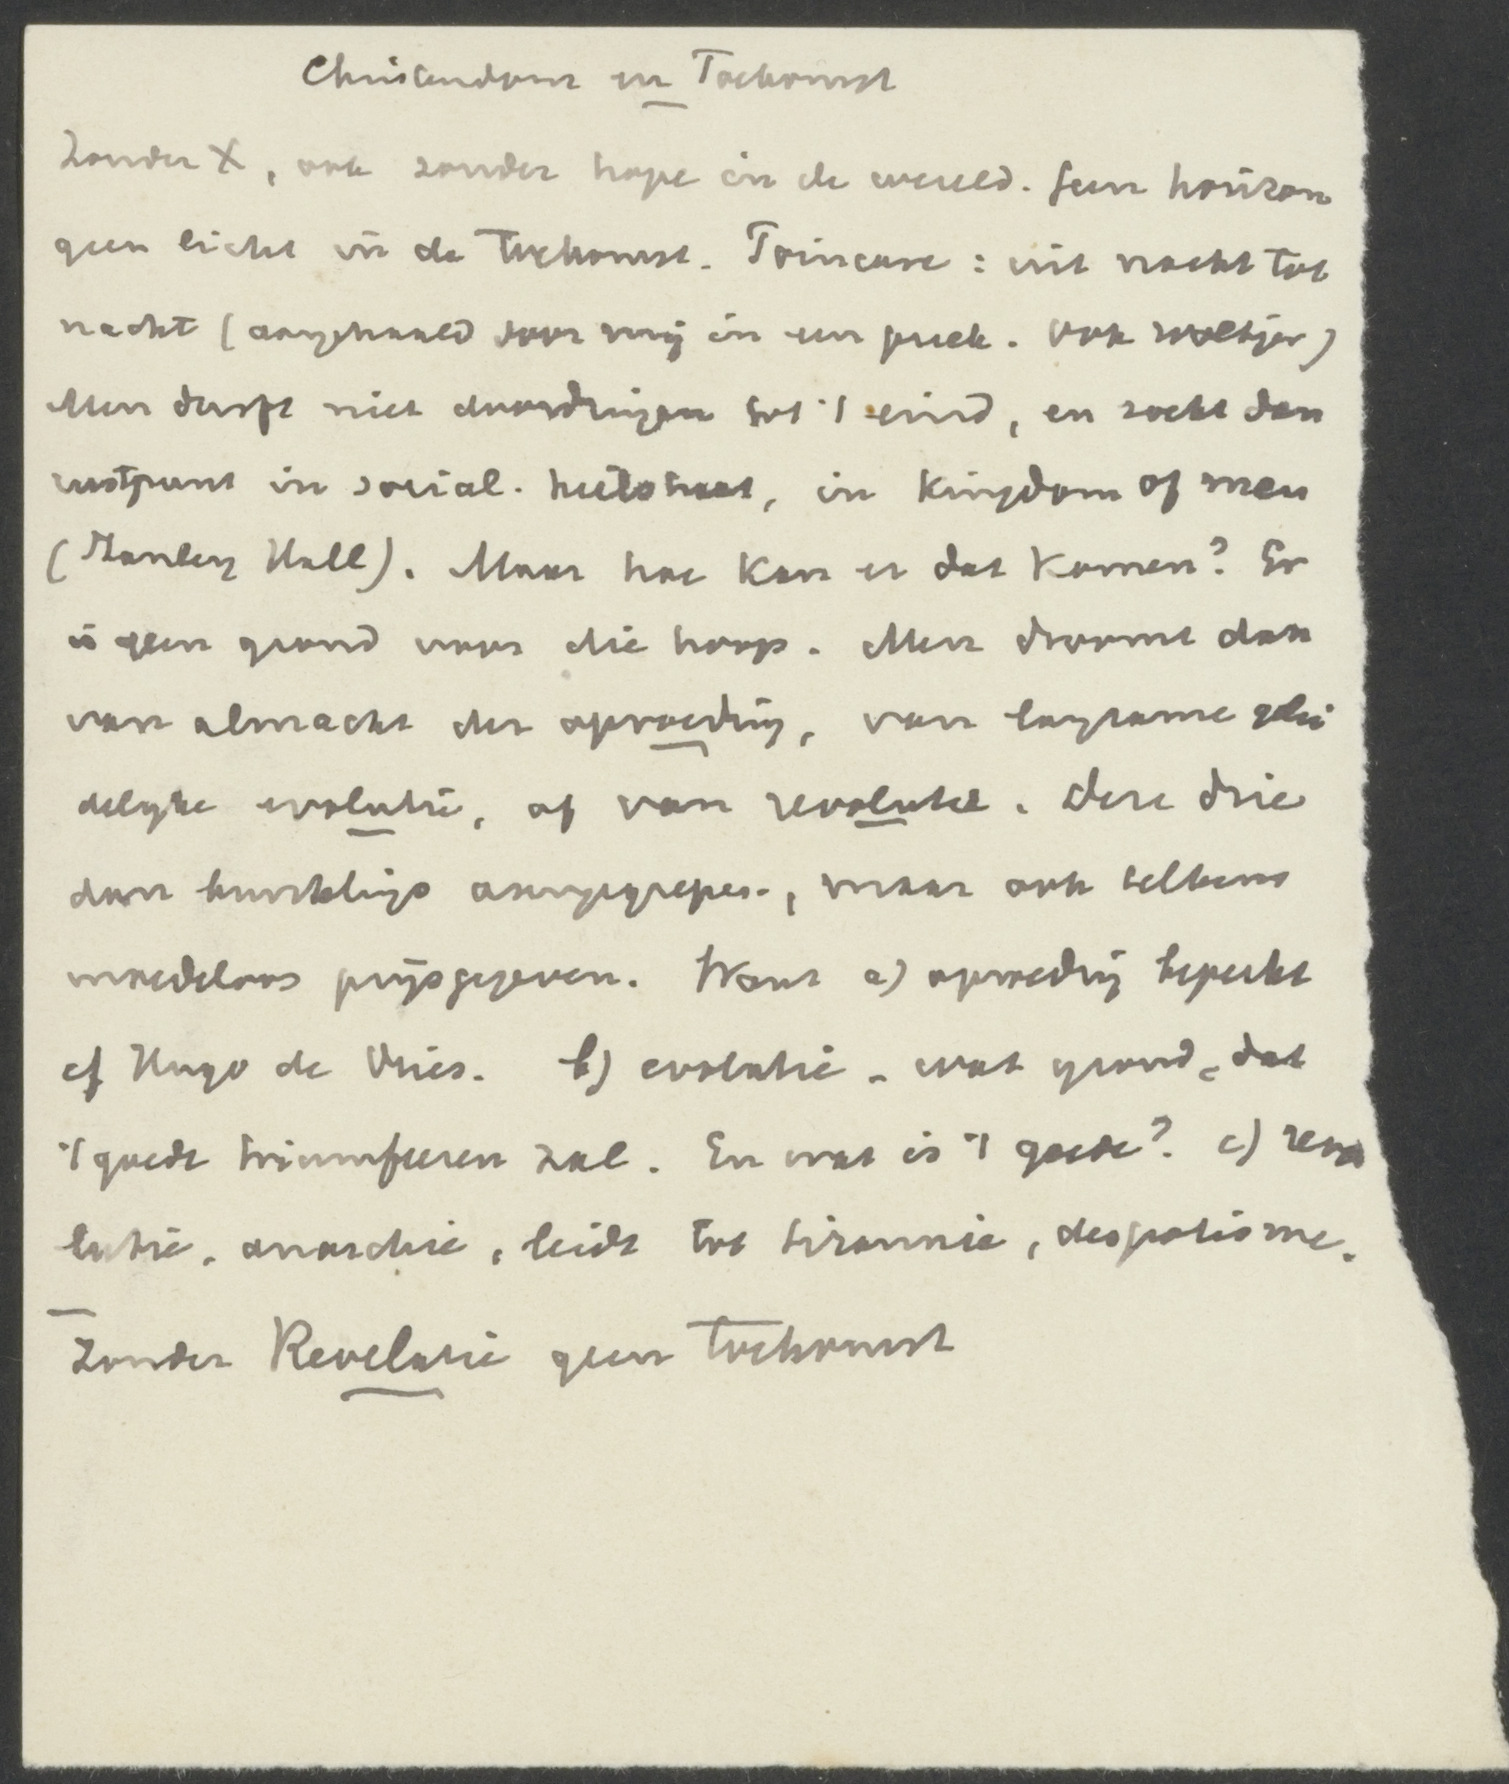 Christendom en Toekomst
Zonder X, ook zonder hope in de wereld. Geen horizon
geen licht in de Toekomst. Poincare: uit nacht tot
nacht (aangehaald door mij in een preek. ook Woltjer)
Men durft niet doordringen tot 't eind, en zoekt dan
rustpunt in social. heilstaat, in Kingdom of men
(Stanley Hall). Maar hoe kan er dat komen? Er
is geen grond voor die hoop. Men droomt dan
van almacht der opvoeding, van langzame gelei
delijke evolutie, of van revolutie. Deze drie
dan beurtelings aangegrepen, maar ook telkens
moedeloos prijsgegeven. Want a) opvoeding beperkt
cf Hugo de Vries. b) evolutie - wat grond, dat
't goede triumfeeren zal. En wat is 't goede? c) revo
lutie, anarchie, leidt tot tirannie, despotisme.
Zonder Revelatie geen Toekomst